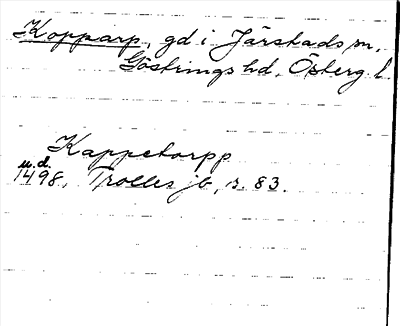 Kopparp, gd i Järstads sn,
Göstrings hd, Östergl.
Kappetorpp
u.d.
1498, Trolles jb, s. 83.